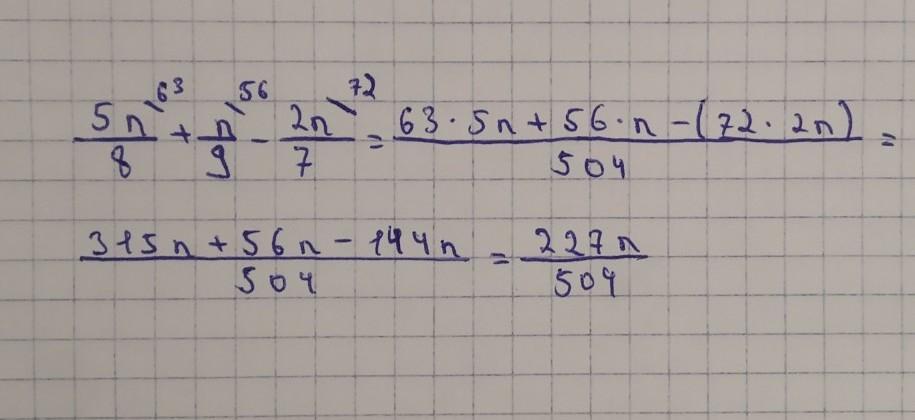 5n\63/8 + n\56/9 - 2n\72/7 = 63·5n + 56·n - (72·2n)/504 =
315n + 56n - 144n/504 = 227n/504